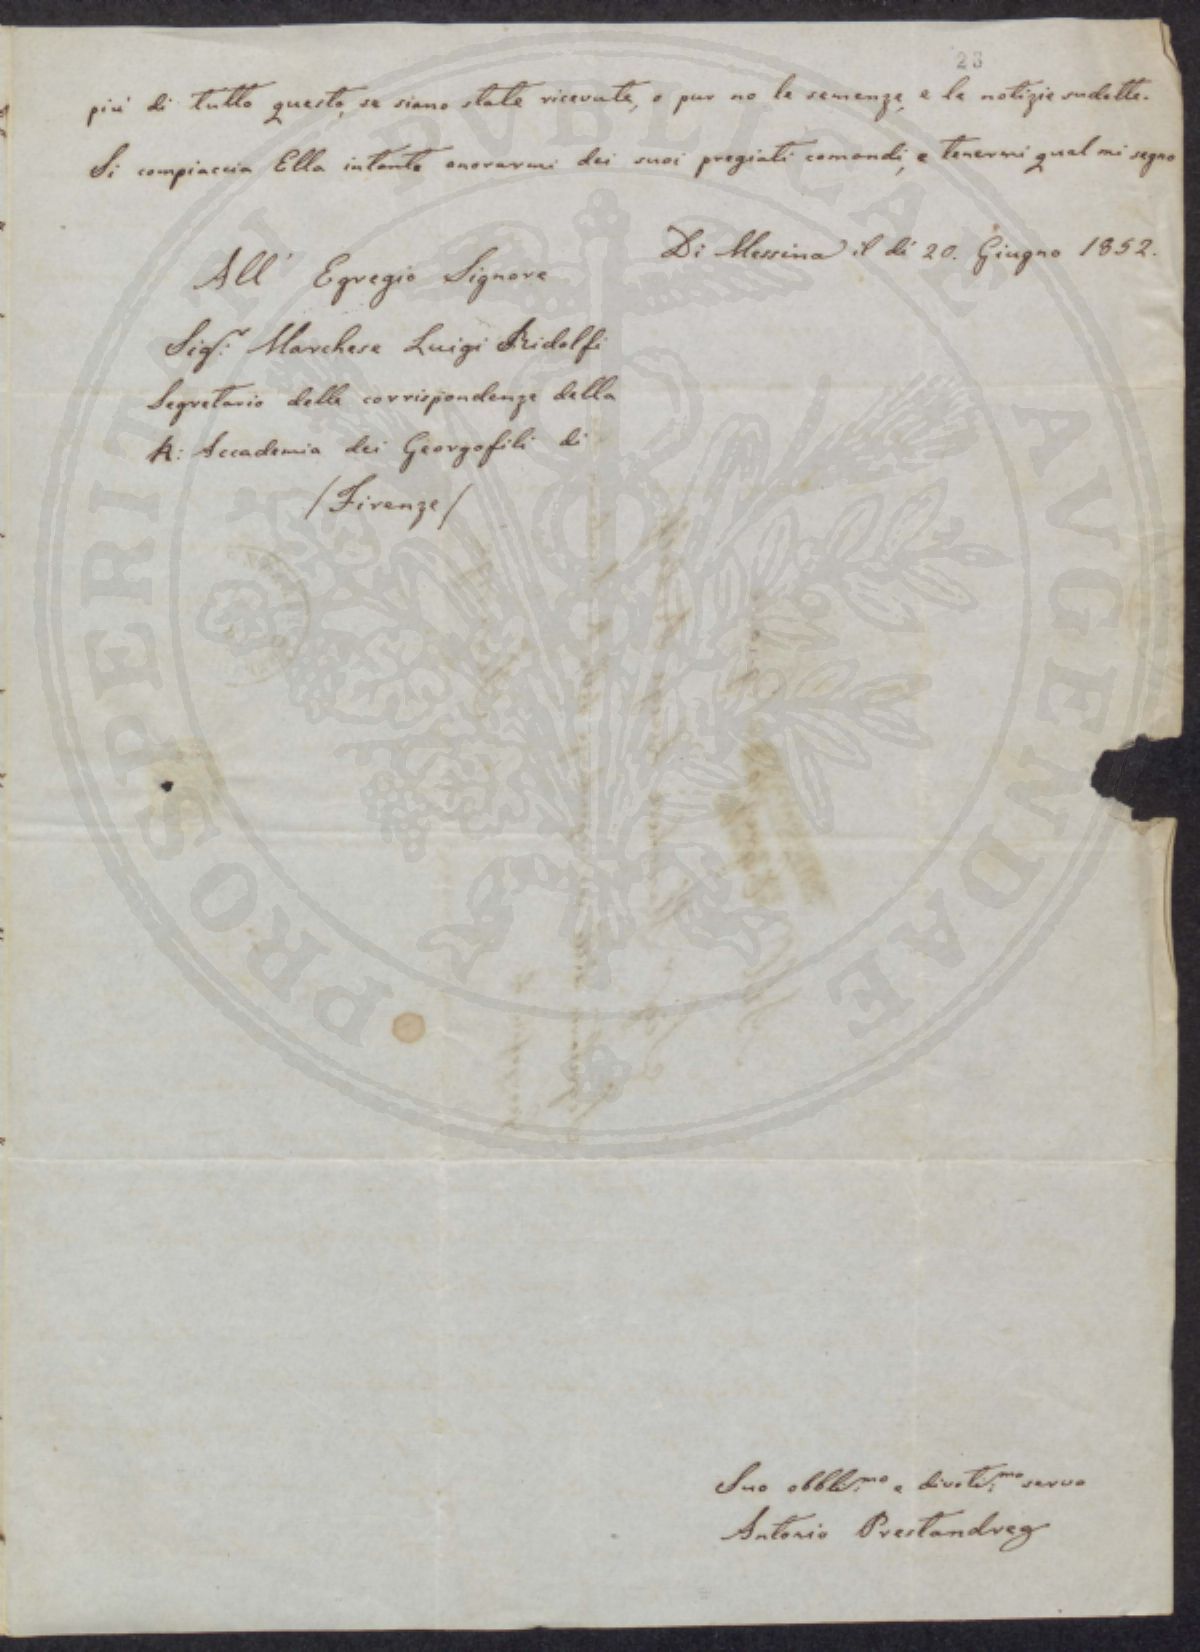 23
più di tutto questo, se siano state ricevute, o pur no le semenze, e le notizie sudette.
Si compiaccia Ella intanto onorarmi dei suoi pregiati comandi, e tenermi qual mi segno
Di Messina il dì 20. Giugno 1852.
All' Egregio Signore
Sig.r Marchese Luigi Ridolfi
Segretario delle corrispondenze della
R: Accademia dei Georgofili di
/Firenze/
PROSPERITATI PVBLICAE AVGENDAE
Suo obbli:mo e divoti:mo servo
Antonio Prestandrea